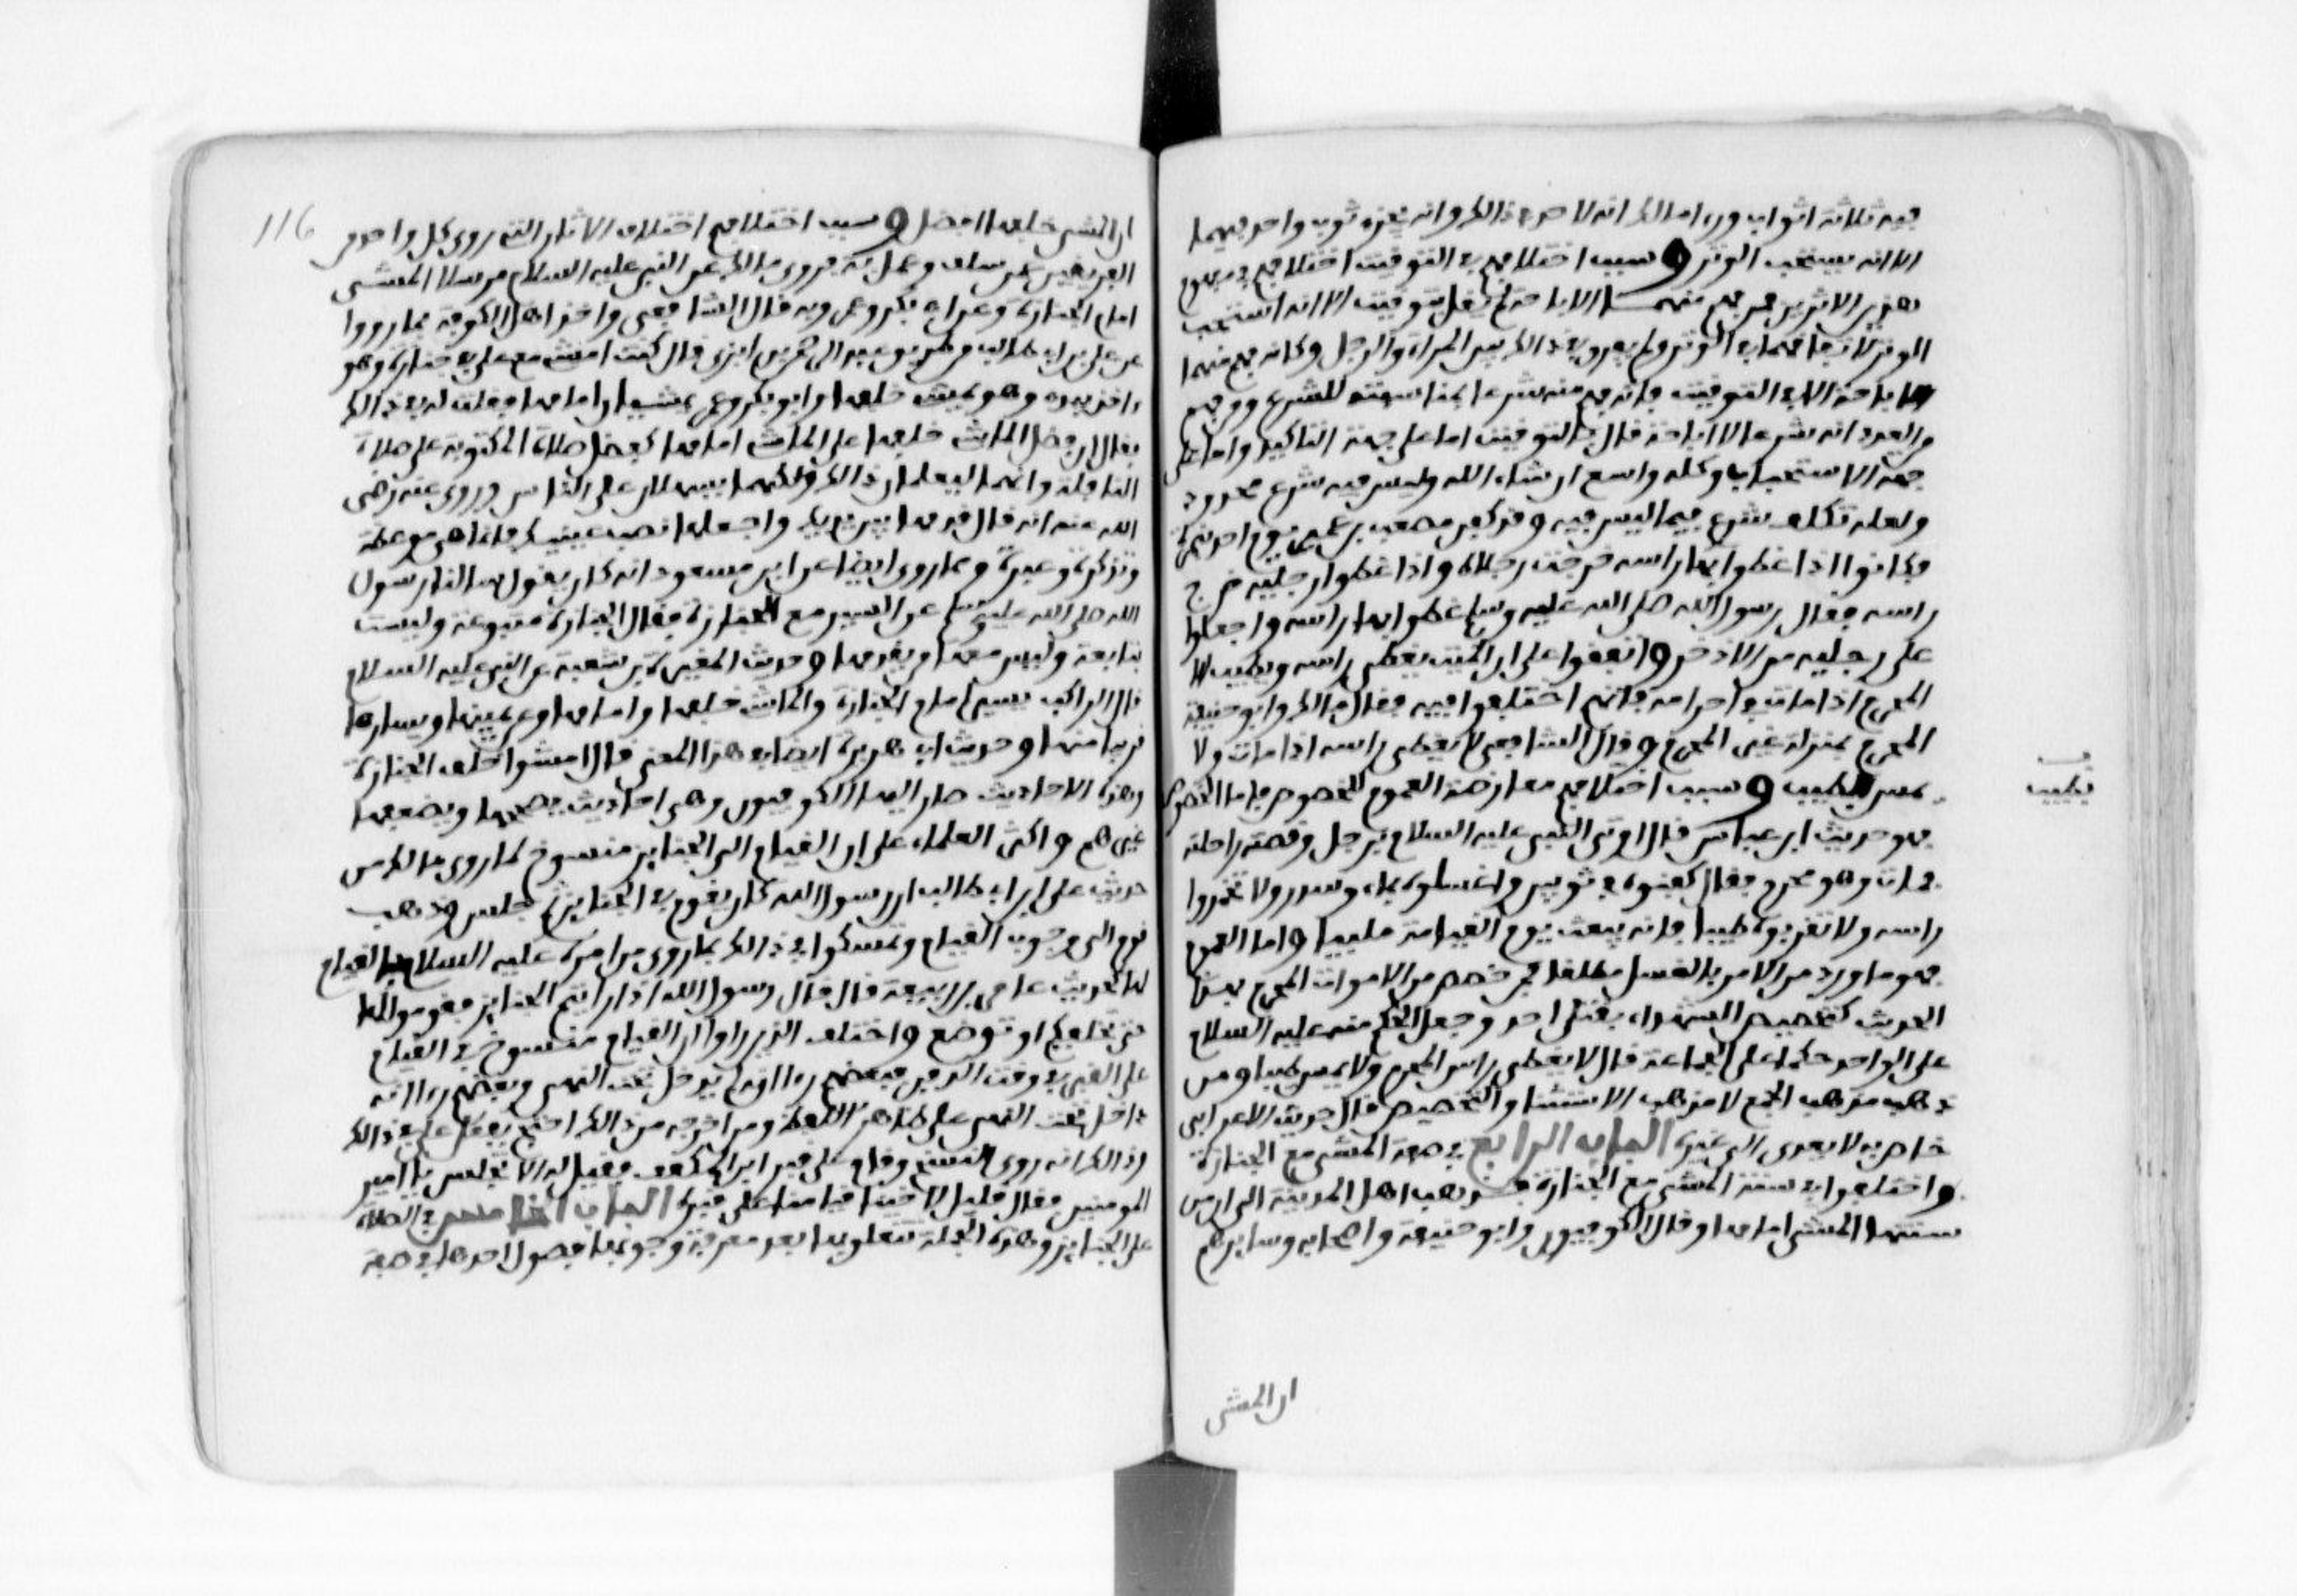 فيه ثلاثة اثواب وراء امالك انه لا حد في ذالك وانه يجزء ثوب واحد فيهما
الا انه يستحب الوتر وسبب اختلافهم في التوقيت اختلافهم في مفهوم
هذين الاثرين فمن فهم منهما الاباحة لم يقل بتوقيت الا انه استحب
الوتر لاتفاقهما في الوتر ولم يفرق في ذالك بين المراة والرجل وكانه فهم منهما
الاباحة الا في التوقيت فانه فهم منه شرعا لمناسبته للشرع ومن فهم
من العدد انه شرع لا اباحة قال بالتوقيت اما على جهة التاكيد واما على
جهة الاستحباب وكله واسع ان شاء الله وليس فيه شرع محدود
ولعله تكلف شرع فيما ليس فيه وقد كفن مصعب بن عمير يوم احد بنمرة
فكانوا اذا غطوا بها راسه خرجت رجلاه واذا غطوا رجليه خرج
راسه فقال رسول الله صلى الله عليه وسلم غطوا بها راسه واجعلوا
على رجليه من الاذخر واتفقوا على ان الميت يغطى راسه ويطيب الا
المحرم اذا مات في احرامه فانهم اختلفوا فيه فقال مالك وابو حنيفة
المحرم بمنزلة غير المحرم وقال الشافعي لا يغطى راسه اذا مات ولا
يمس بطيب وسبب اختلافهم معارضة العموم للخصوص فاما الخصوص
ف
تطيب
فهو حديث ابن عباس قال اوتي النبي عليه السلام برجل وقصته راحلته
فمات وهو محرم فقال كفنوه في ثوبين واغسلوه بماء وسدر ولا تخمروا
راسه ولا تقربوه طيبا فانه يبعث يوم القيامة ملبيا واما العموم
فهو ما ورد من الامر بالغسل مطلقا فمن خصص من الاموات المحرم بهذا
الحديث كتخصيص الشهداء بقتلى احد وجعل الحكم منه عليه السلام
على الواحد حكما على الجماعة قال لا يغطى راس المحرم ولا يمس طيبا ومن
ذهب مذهب الجمع لا مذهب الاستثناء والتخصيص قال حديث الاعرابي
خاص به لا يعدى الى غيره الباب الرابع في صفة المشي مع الجنازة
واختلفوا في سنة المشي مع الجنازة فذهب اهل المدينة الى ان من
سنتها المشي امامها وقال الكوفيون وابو حنيفة واصحابه وسايرهم
ان المشي
116
ان المشي خلفها افضل وسبب اختلافهم اختلاف الاثار التي روى كل واحد من
الفريقين عن سلفه وعمل به فروى مالك عن النبي عليه السلام مرسلا المشي
امام الجنازة وعن ابي بكر وعمر وبه قال الشافعي واخذ اهل الكوفة بما رووا
عن علي بن ابي طالب من طريق عبد الرحمن بن ابزى قال كنت امشي مع علي في جنازة وهو
ءاخذ بيدي وهو يمشي خلفها وابو بكر وعمر يمشيان امامها فقلت له في ذالك
فقال ان فضل الماشي خلفها على الماشي امامها كفضل صلاة المكتوبة على صلاة
النافلة وانهما ليعلمان ذالك ولكنهما يسهلان على الناس وروي عنه رضي
الله عنه انه قال قدمها بين يديك واجعلها نصب عينيك فانما هي موعظة
وتذكرة وعبرة وبما روي ايضا عن ابن مسعود انه كان يقول سالنا رسول
الله صلى الله عليه وسلم عن السير مع الجنازة فقال الجنازة متبوعة وليست
بتابعة وليس معها من يقدمها وحديث المغيرة بن شعبة عن النبي عليه السلام
قال الراكب يسير امام الجنازة والماشي خلفها وامامها وعن يمينها ويسارها
قريبا منها وحديث ابي هريرة ايضا في هذا المعنى قال امشوا خلف الجنازة
وهذه الاحاديث صار اليها الكوفيون وهي احاديث يصححونها ويضعفها
غيرهم واكثر العلماء على ان القيام الى الجنايز منسوخ لما روى مالك من
حديث علي بن ابي طالب ان رسول الله كان يقوم في الجنايز ثم جلس وذهب
قوم الى وجوب القيام وتمسكوا في ذالك بما روي من امره عليه السلام بالقيام
لها لحديث عامر بن ربيعة قال قال رسول الله اذا رايتم الجنايز فقوموا لها
حتى تخلفكم او توضع واختلف الذين راوا ان القيام منسوخ في القيام
على القبر في وقت الدفن فبعضهم رءا انه لم يدخل تحت النهي وبعضهم رءا انه
داخل تحت النهي على ظاهر اللفظ ومن اخرجه من ذالك احتج بفعل علي في ذالك
وذالك انه روى النسخ وقام على قبر ابن المكفف فقيل له الا تجلس يا امير
المومنين فقال قليل لاخينا قيامنا على قبره الباب الخامس في الصلاة
على الجنايز وهذه الجملة تتعلق بها بعد معرفة وجوبها فصول احدها في صفة